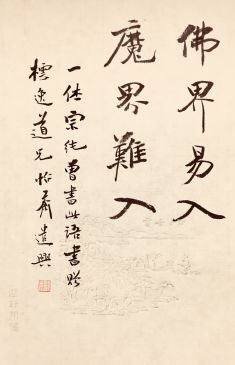 佛界易入
魔界難入
一休宗純曾書此語書貽
逸道兄怡齋遣興